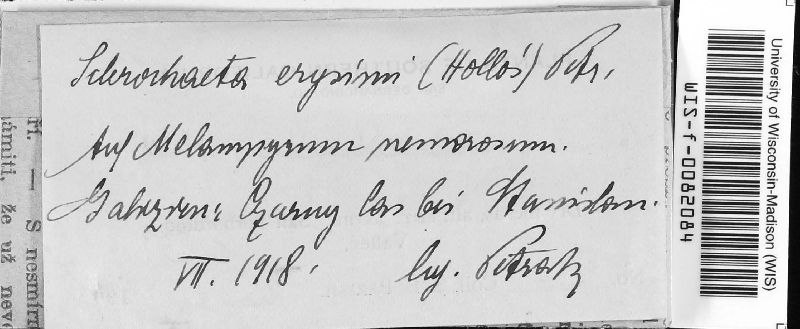 Sclerochaeta erysimi (Hollós) Petr.
Auf Melampyrum nemorosum.
Galizien: Czarny las bei Stanislau.
VII. 1918. lg. Petrak
University of Wisconsin-Madison (WIS)
WIS-f-0082084
S nesmíru
úmití, že už neve